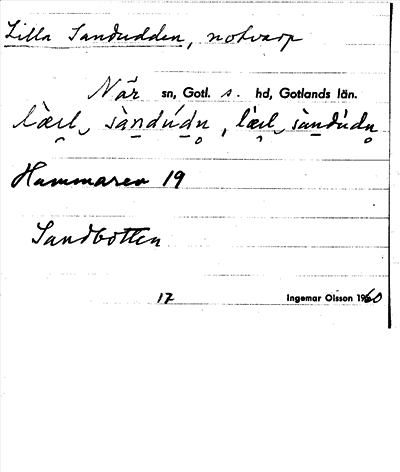 Lilla Sandudden, notvarp
När sn, Gotl. s. hd, Gotlands län.
Hammaren 19
Sandbotten
17 Ingemar Olsson 1960